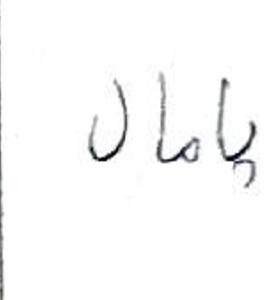 پامال